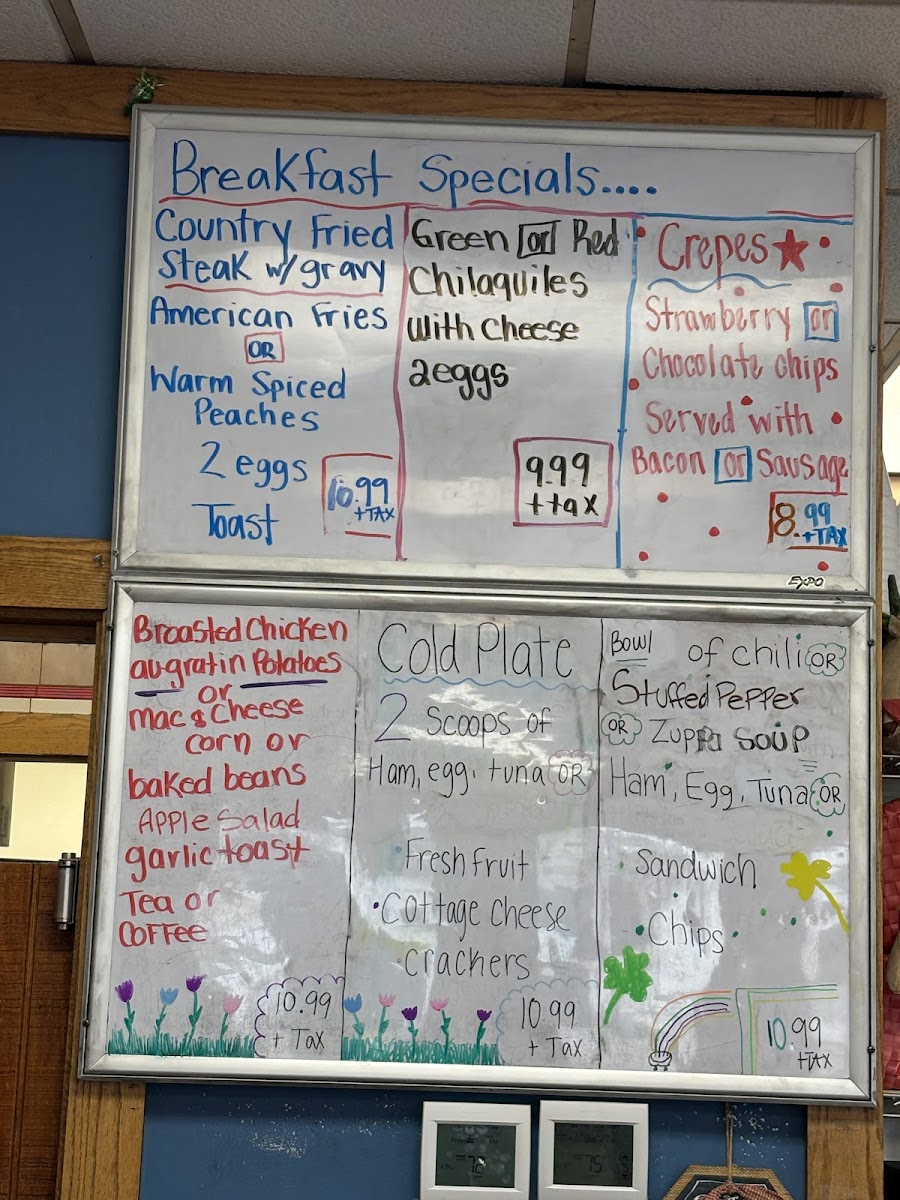 Breakfast Specials....
Country Fried
Steak w/ gravy
American Fries
OR
Warm Spiced
Peaches
2 eggs
Toast
10.99
+TAX
Green or Red
Chilaquiles
With Cheese
2eggs
9.99
+tax
Crepes
Strawberry or
Chocolate chips
Served with
Bacon or Sausage
8.99
+TAX
EXPO
Broasted Chicken
au-gratin Potatoes
or
Mac & Cheese
corn or
baked beans
Apple Salad
garlic toast
Tea or
Coffee
10.99
+ Tax
Cold Plate
2 Scoops of
Ham, egg, tuna OR
Fresh fruit
•Cottage cheese
crackers
10.99
+ Tax
Bowl of chili OR
Stuffed Pepper
OR Zuppa Soup
Ham, Egg, Tuna OR
Sandwich
Chips
10.99
+TAX
72
75